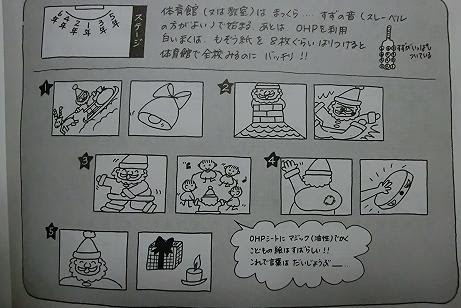 ステージ
6年
4年
2年
1年
3年
5年
体育館(又は教室)は まっくら‥‥すずの音(スレーベル
の方がよい)で始まる。あとは OHPを利用
白いまくは、もぞう紙を8枚ぐらいはりつけると
体育館で全校みるのに バッチリ!!
すずがいっぱい
ついている
1
2
3
4
5
OHPシートに マジック(油性)でかく
こどもの絵はすばらしい!!
これで言葉は だいじょうぶ